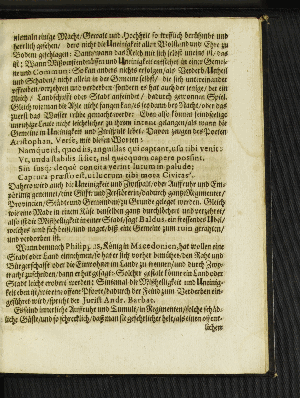 niemaln einige Macht / Gewalt und Hochheit so trefflich berühmbt und
herrlich gesehen / dero nicht die Uneinigkeit allen Wolstand und Ehre zu
Bodem geschlagen: Dann wann das Reich mit sich selbst uneins ist, das
ist: Wann Mißverständnüß und Uneinigkeit entstehet in einer Gemei-
ne und Commun: So kan anders nichts erfolgen / als Verderb / Unheil
und Schaden / nicht allein in der Gemeine selbst / die sich untereinander
Reich / Landschafft oder Stadt anfeindet / dadurch gewonnen Spiel.
Gleich wie man die Ahle nicht fangen kan / es sey dann der Bach / oder das
Wasser trübe gemacht worden: Also
unruhige Leute nicht leichtlicher zu ihrem intent und
Gemeine in Uneinigkeit und Zwispalt lebet. Davon zeugen des Poeten
Aristophan. Verse, mit diesen Worten:
Namque id, quod is, anguillas qui captant, usu tibi venit:
Ut, unda stabilis si siet, nsl quicquam capere possint,
Sin susq; deque concitè vertant lutum in palude:
Captum praesto est, ut lucrum tibi mota Civitas.
Dahero wird auch die Uneinigkeit und Zwispalt / oder Auffruhr und Em-
pörung genennet / eine Gifft und Zerstörerin / dadurch gantze Regimenter /
Provincien / Städte und Gemeinen zu Grunde geleget werden. Gleich
wie eine Made in einem Käse denselben gantz durchlöchert und zerschrotet /
also ist die Mißhelligkeit in einer Stadt / sagt Baldus, ein fressendes Ubel /
welches umb sich friset / und naget, biß eine Gemeine zum ruin gerahten /
und verdorben ist.
Wann dermnach Philippus, König in Macedonien, hat wollen eine
Stadt oder Land einnehmen / so hat er sich vorher bemühet den Raht und
Bürgerschafft oder die Einwohner im Lande zu trennen / und durch Zwy-
tracht zuscheiden / dann er hat gesagt: Solcher gestalt könne ein Land oder
Stadt leicht erobert werden: Sintemal die Mißhelligkeit und Uneinig-
keit eben ist / wie eine offene Pforte / dadurch der Feind zum Verderben ein-
geführet wird / spricht der Jurist Andr. Barbat.
Es sind innerliche Auffruhr und Tumult / in Regimenten / solche schäd-
liche Gäste / und so schrecklich / daß man sie gefehrlicher helt / als einen offent-
lichem